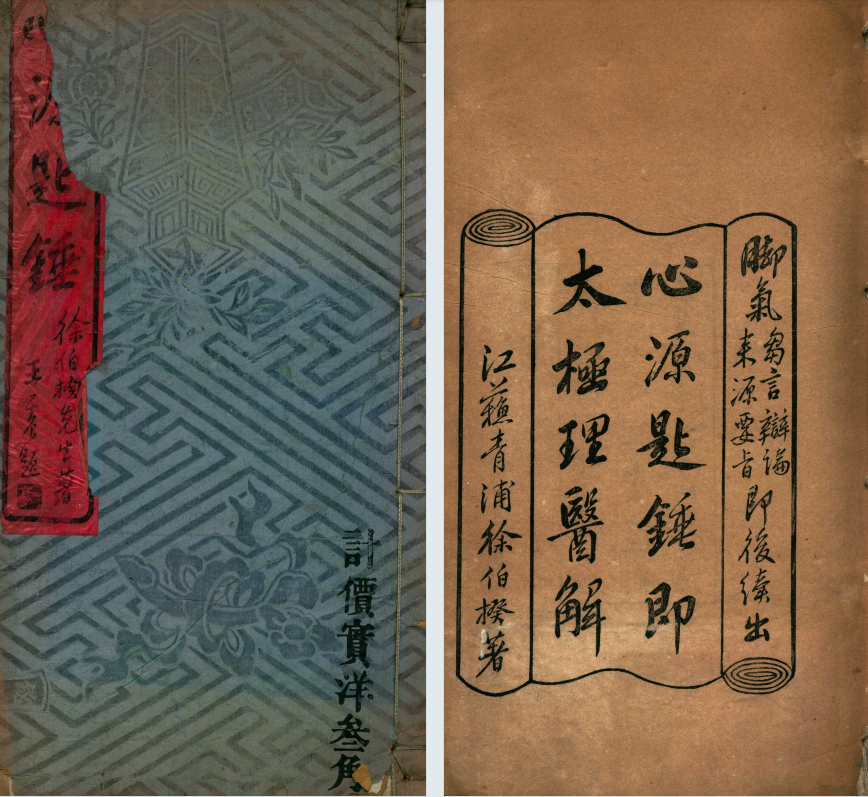 源匙錘
徐伯揆先生著
王題
計價實洋叁角
脚氣芻言辯論来源要旨即後續出
心源匙錘即
太極理醫解
江蘇青浦徐伯揆著